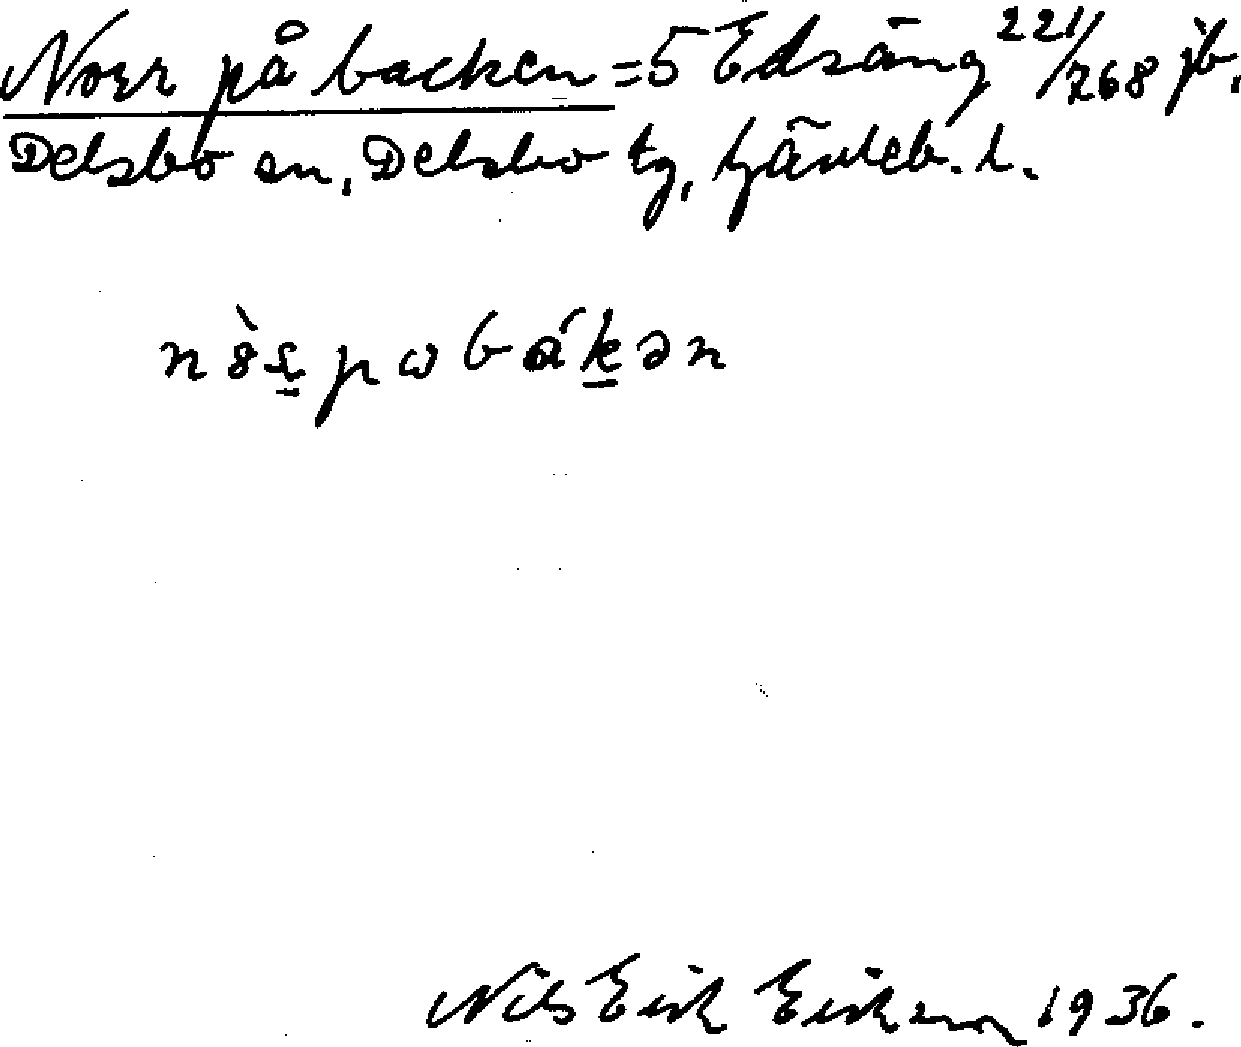 Norr på backen = 5 Edsäng 221/268 jb.
Delsbo sn, Delsbo tg, Gävleb. l.
Nils Erik Eriksson 1936.